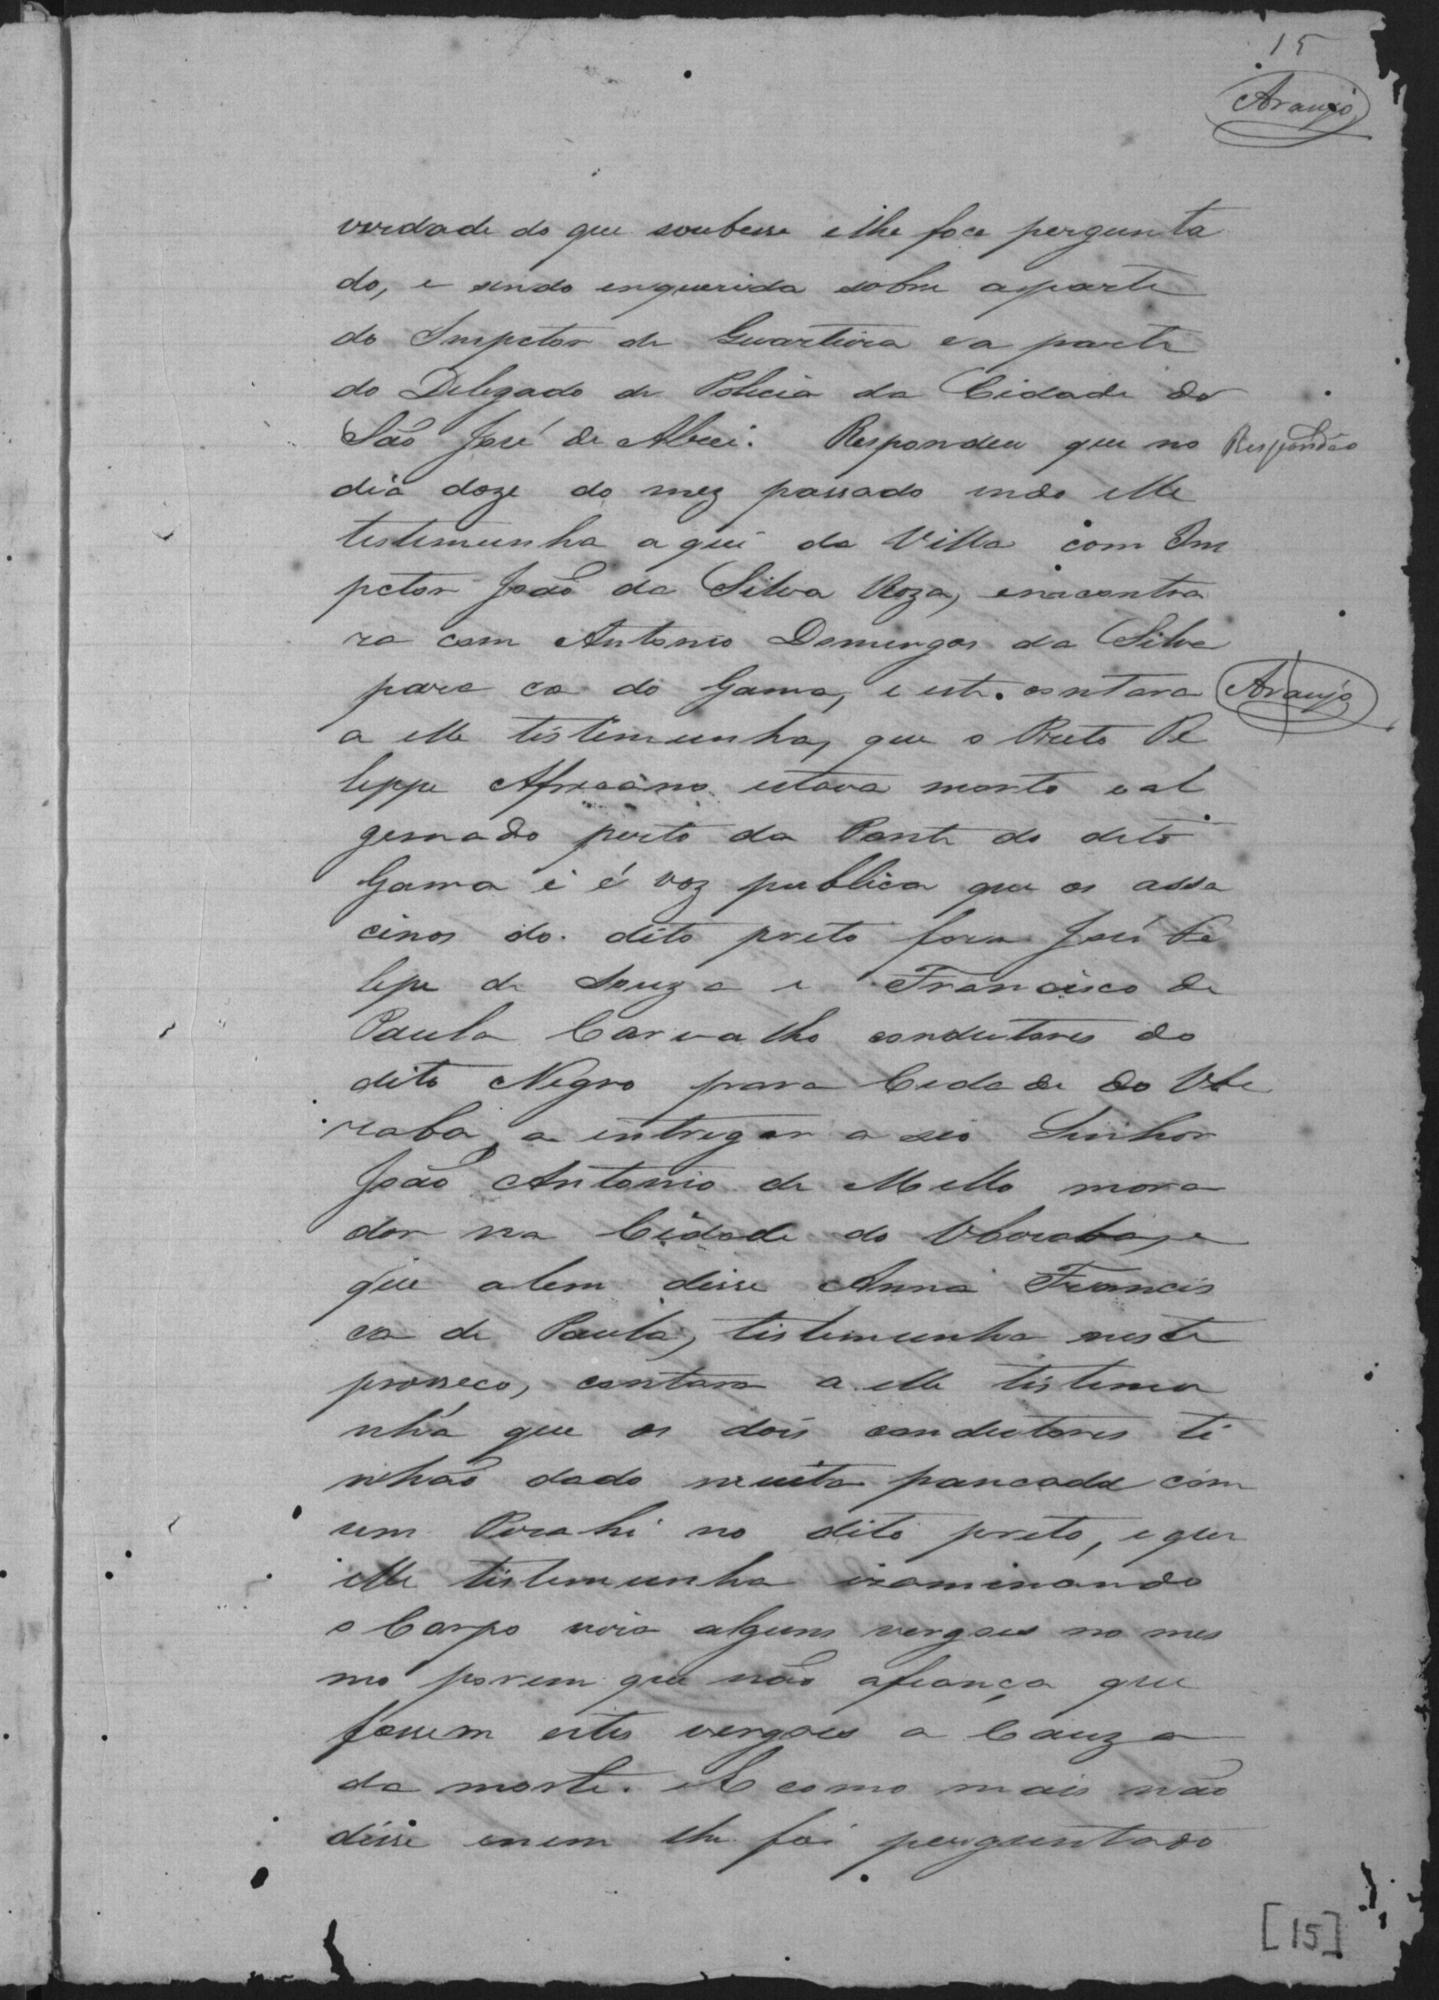 15
Araujo
verdade do que soubesse elhe foce pergunta
do, e sendo enquerida sobre aparte
do Inspetor de Quarteira ea parte
do Delegado de Policia da Cidade do
São José de
Respondeu que no
Respondeo
dia doze do mez passado indo elle
testemunha aqui da Villa com Ins
petor João da Silva Roza, enicontra
ra com Antonio Domingos da Silva
para ca do Gama, e este contara
Araujo
a elle testemunha, que o Preto Fe
leppe Africano estava morto eal
gemado perto da Ponte do dito
Gama e é voz publica que os assa
cinos do dito preto fora José Fe
lipe de Souza e Francisco de
Paula Carvalho condutores do
dito Negro para Cidade do Ube
raba, a entregar a seo Senhor
João Antonio de Mello mora
dor na Cidade do Uberaba, e
que alem disse Anna Francis
ca de Paula, testemunha neste
prosseco, contara a elle testemu
nha que os dois condutores ti
nhão dado muita pancada com
um no dito preto, eque
elle testemunha examinando
o Corpo vira alguns vergoes no mes
mo porem que não afiança que
fossem estes vergoes a Cauza
da morte. E como mais não
disse enem lhe foi perguntado
[15]